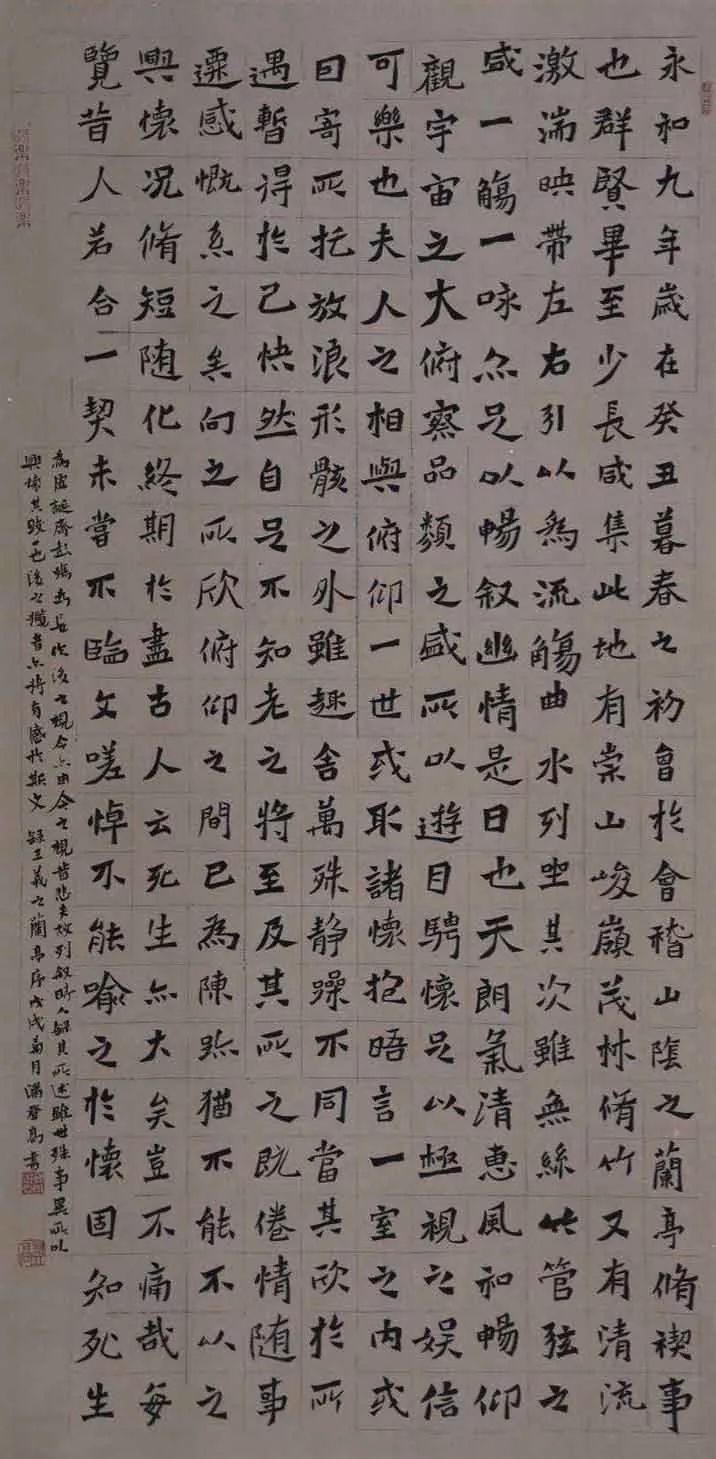 永和九年歲在癸丑暮春之初會於會稽山陰之蘭亭脩禊事
也群賢畢至少長咸集此地有崇山峻嶺茂林脩竹又有清流
激湍映帶左右引以為流觴曲水列坐其次雖無絲竹管弦之
盛一觴一咏亦足以暢叙幽情是日也天朗氣清惠風和暢仰
觀宇宙之大俯察品類之盛所以遊目騁懷足以極視之娛信
可樂也夫人之相與俯仰一世或取諸懷抱晤言一室之內或
因寄所托放浪形骸之外雖趣舍萬殊静躁不同當其欣於所
遇暫得於己快然自足不知老之將至及其所之既倦情随事
遷感慨系之矣向之所欣俯仰之間已為陳跡猶不能不以之
興懷況脩短随化終期於盡古人云死生亦大矣豈不痛哉每
覽昔人若合一契未嘗不臨文嗟悼不能喻之於懷固知死生
為虛誕齊彭殤為妄作後之視今亦由今之視昔悲夫故列叙時人録其所述雖世殊事異所以
興懷其致一也後之攬者亦將有感於斯文 録王羲之蘭亭序戊戌菊月登高書